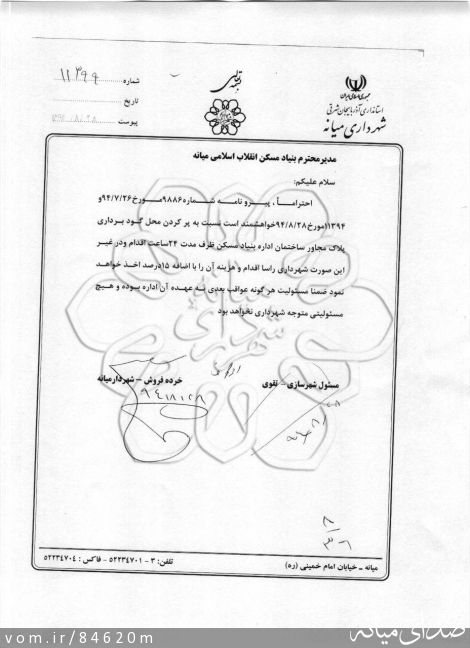 بسمه تعالی
جمهوری اسلامی ایران
استانداری آذربایجان شرقی
شهرداری میانه
شماره ۱۱۳۹۹
تاریخ
پیوست
مدیرمحترم بنیاد مسکن انقلاب اسلامی میانه
سلام علیکم:
احتراماً ، پیرو نامه شماره ۹۸۸۶مورخ۹۴/۷/۲۶و
۱۱۳۹۴مورخ۹۴/۸/۲۸خواهشمند است نسبت به پر کردن محل گود برداری
پلاک مجاور ساختمان اداره بنیاد مسکن ظرف مدت ۲۴ساعت اقدام ودر غیر
این صورت شهرداری راسا اقدام و هزینه آن را با اضافه ۱۵درصد اخذ خواهد
نمود ضمنا مسئولیت هر گونه عواقب بعدی به عهده آن اداره بوده و هیچ
مسئولیتی متوجه شهرداری نخواهد بود
مسئول شهرسازی – نقوی
خرده فروش – شهردارمیانه
۹۴/۸/۲۸
میانه – خیابان امام خمینی (ره)
تلفن: ۳ - ۵۲۲۳۴۷۰۱ - فاکس : ۵۲۲۳۴۷۰۴
vom.ir/84620m
صدای میانه